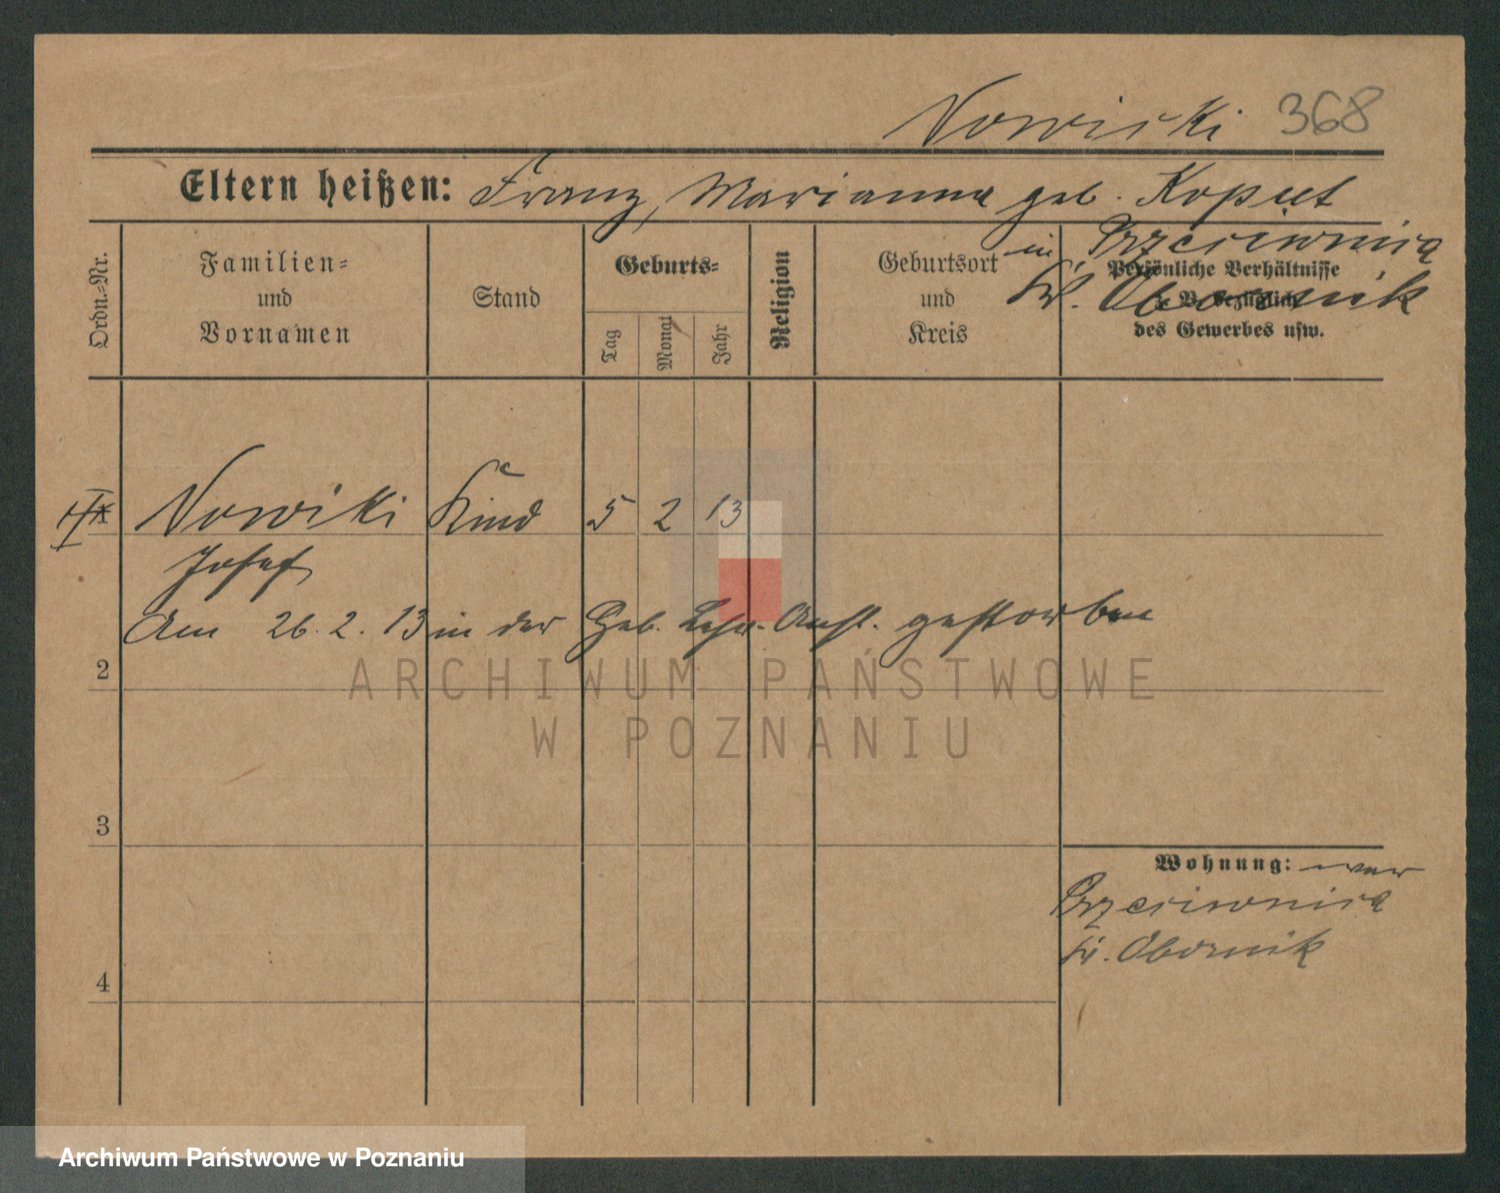 Nowicki 368
Eltern heißen: Franz, Marianna geb. Koput
in
Kr. Obornik
Ordn.-Nr.
Familien-
und
Vornamen
Stand
Geburts-
Tag
Monat
Jahr
Religion
Geburtsort
und
Kreis
Persönliche Verhältnisse
z. B. bezüglich
des Gewerbes usw.
Nowicki Kind 5 2 13
Josef
Am 26. 2. 13 in der Geb. Lehr-Anst. gestorben
2
3
4
Wohnung: war
Kr. Obornik
ARCHIWUM PAŃSTWOWE
W POZNANIU
Archiwum Państwowe w Poznaniu